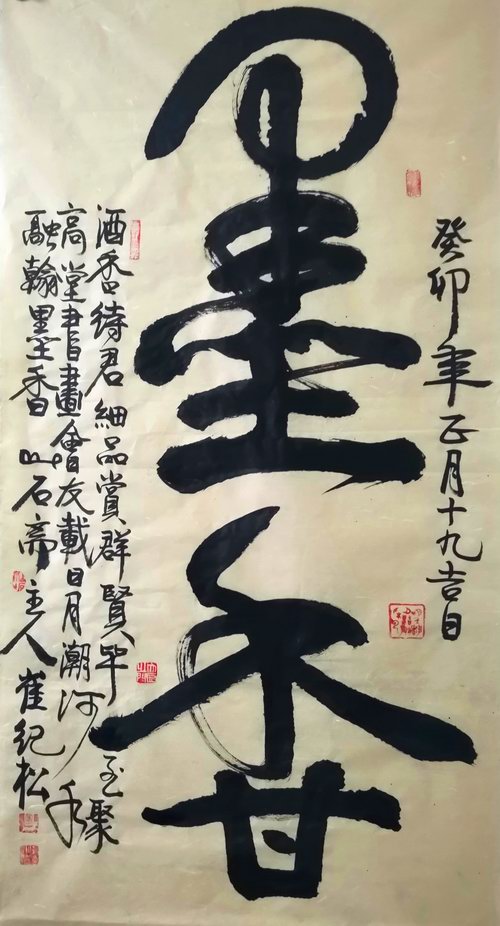 癸卯年正月十九吉日
墨香
酒香待君細品賞群賢毕至聚
高堂書畫會友載日月潮河水
融翰墨香山石斋主人崔纪松